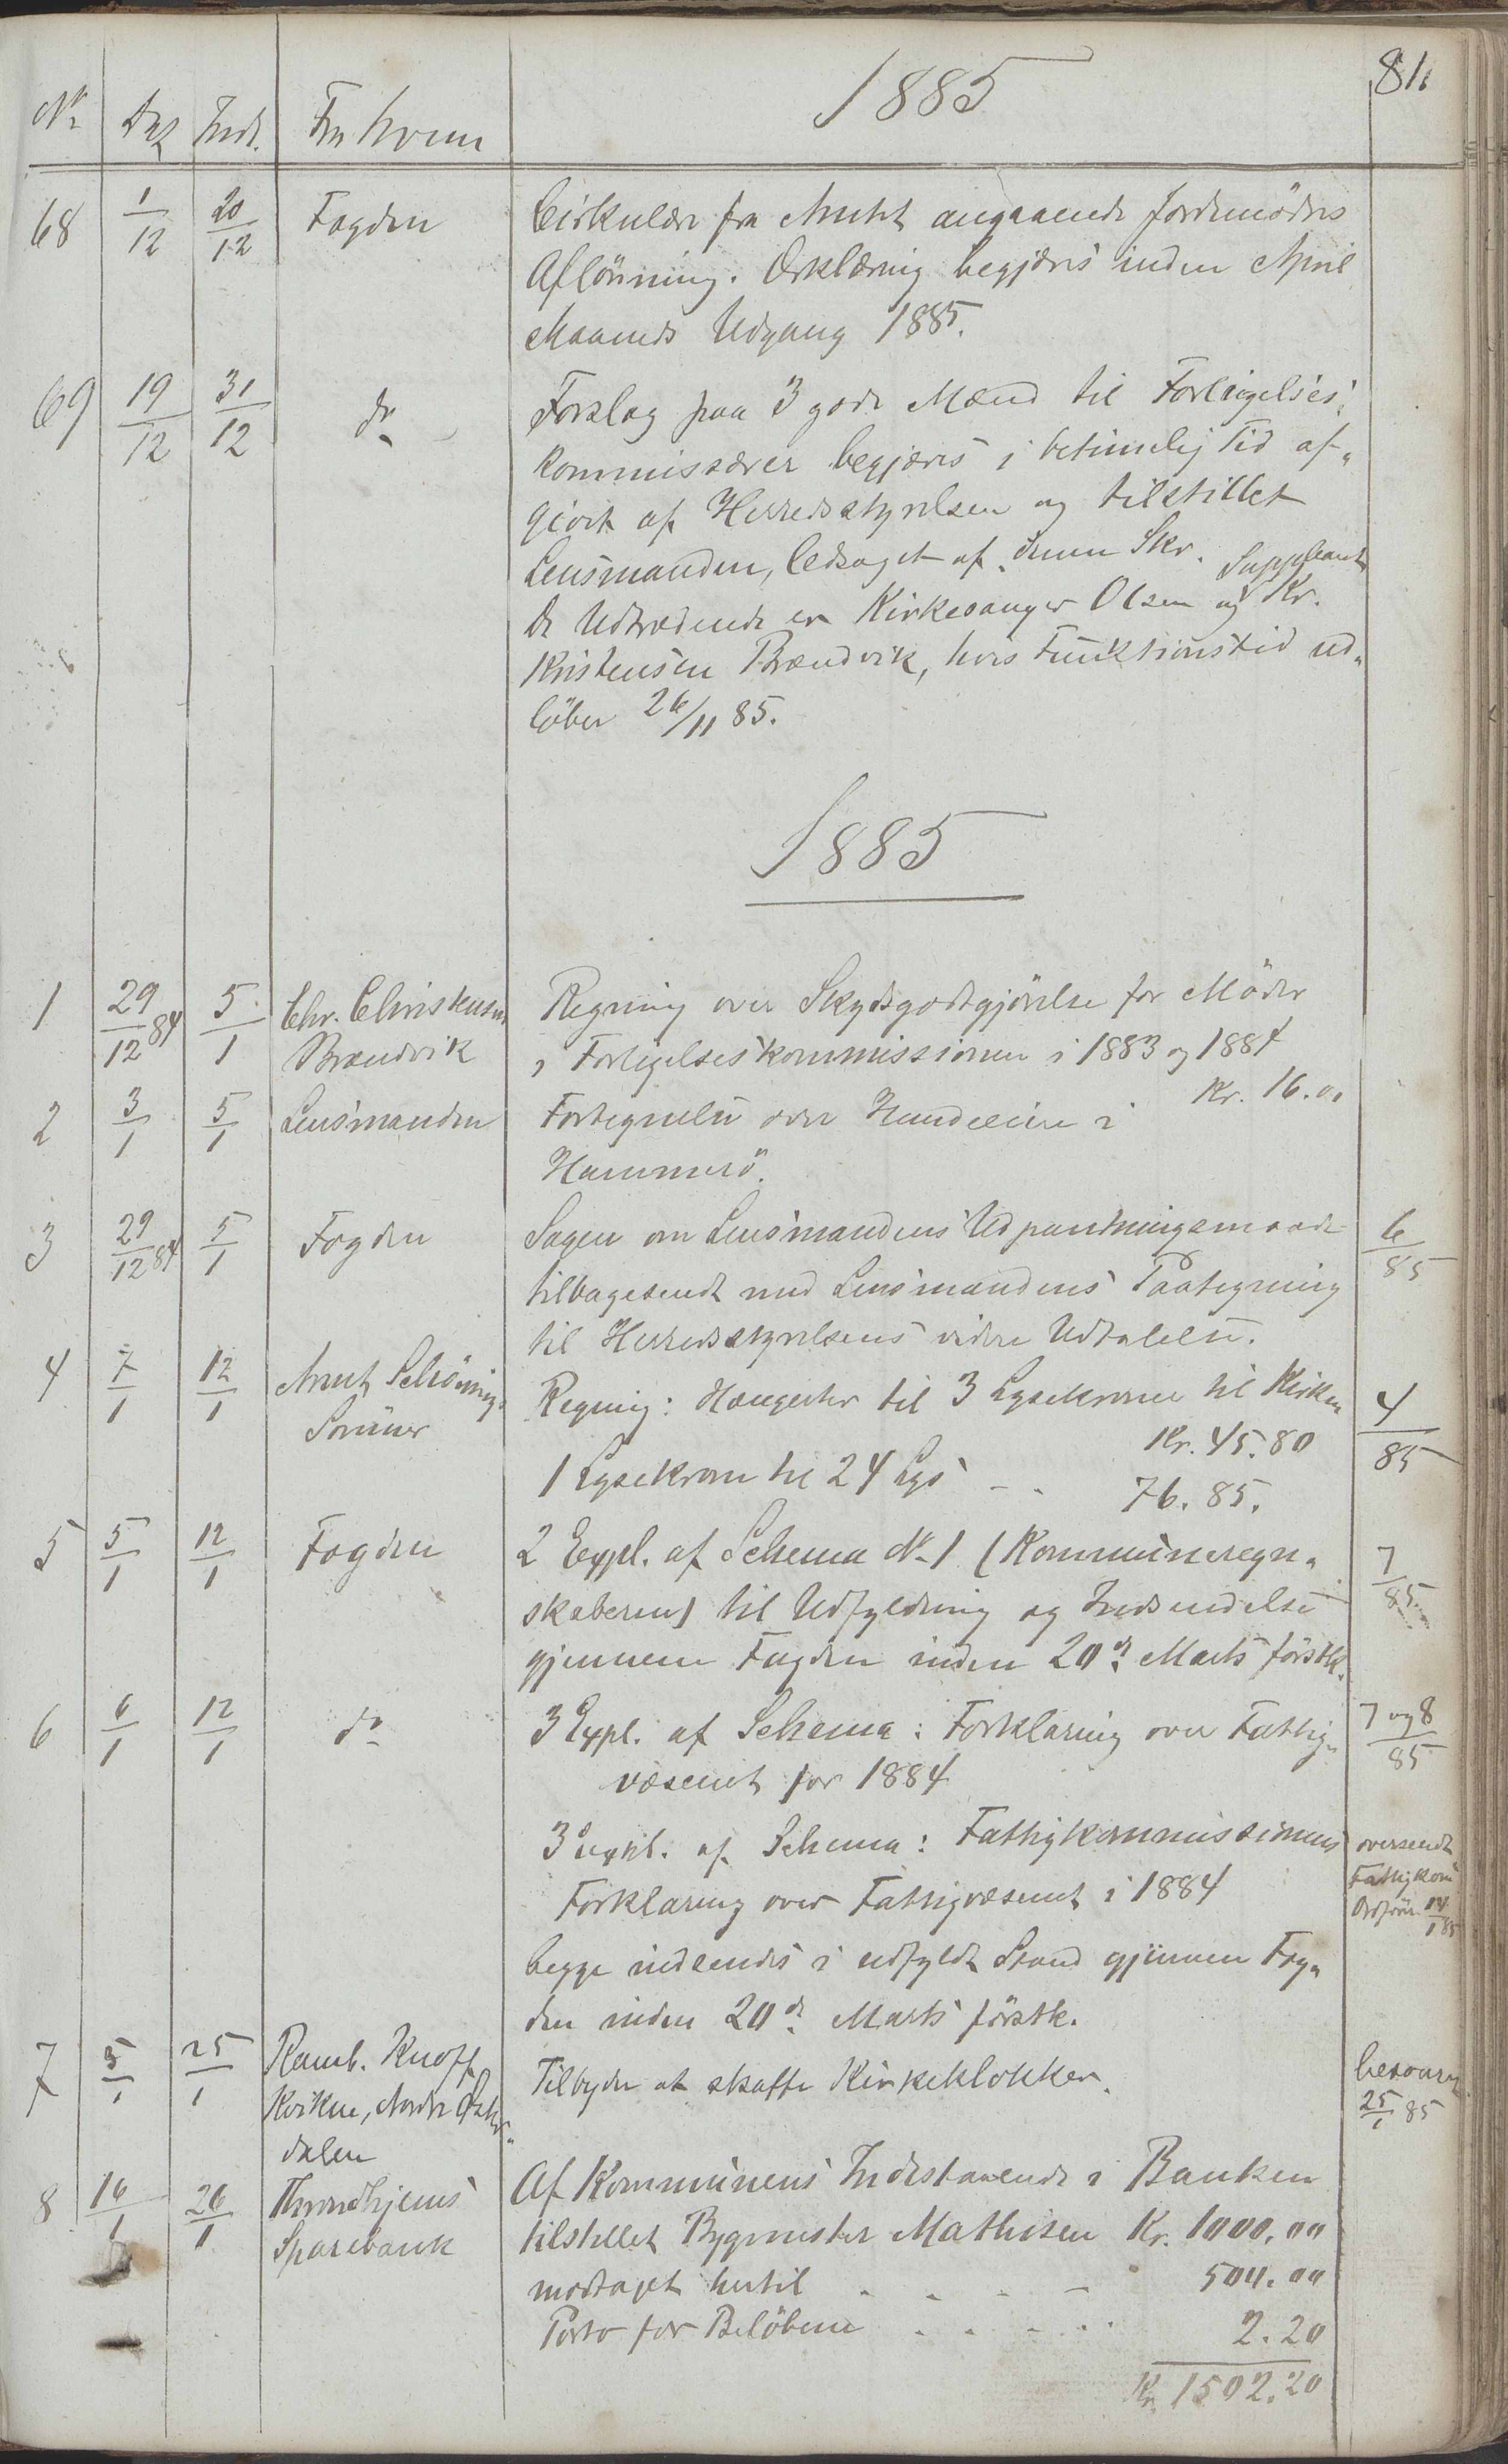 81.
1885
No Dag Indt. Fra hvem
68 1/12 20/12 Fogden Cirkulære fra Amtet angaaende Jordemødres
Aflönning. Erklæring begjæres inden April
Maaneds Udgang 1885.
69 19/12 31/12 do Forslag paa 3 gode Mænd til Forligelses-
kommissærer begjæres i betimelig Tid af-
givet af Herredsstyrelsen og tilstillet
Lensmanden, ledsaget af denne Skr. Suppleant
De Udtrædende er Kirkesanger Olsen og Kr.
Kristensen Brændvik, hvis Funktionstid ud-
löber 26/11 85.
1885
1 29/12 84 5/1 Chr. Christensen Regning over Skydsgodtgjörelse for Möder
Brændvik i Forligelseskommissionen i 1883 og 1884
Kr. 16.00
2 3/1 5/1 Lensmanden Fortegnelse over Hundeeiere i
Hammerö.
3 29/12 84 5/1 Fogden Sagen om Lensmandens Udpantningsmaade 6/85
tilbagesendt med Lensmandens Paategning
til Herredsstyrelsens videre Udtalelse.
4 7/1 12/1 Arnt Schöning Regning: Hængerter til 3 Lysekroner til Kirken 4/85
Kr. 45.80
1 Lysekrone til 24 Lys - - 76.85.
5 5/1 12/1 Fogden 2 Expl. af Schema No 1 (Kommuneregn- 7/85
skaberne) til Udfyldning og Indsendelse
gjennem Fogden inden 20de Marts förstk.
6 6/1 12/1 do 3 Expl. af Schema: Forklaring over Fattig- 7 og 8/85
væsenet for 1884
3 Expl. af Schema: Fattigkommissionens oversendt
Forklaring over Fattigvæsenet i 1884 Fattigkom
Ordför. 14/1 85
begge indsendes i udfyldt Stand gjennem Fog-
den inden 20de Marts förstk.
7 5/1 25/1 Ramb. Knoff Tilbyder at skaffe Kirkeklokker. besvaret
25/1 85
dalen
8 16/1 26/1 Throndhjems Af Kommunens Indestaaende i Banken
Sparebank tilstillet Bygmester Mathisen Kr. 1000.00
modtaget hertil - - - - 500.00
Porto for Belöbene - - - - 2.20
Kr. 1502.20